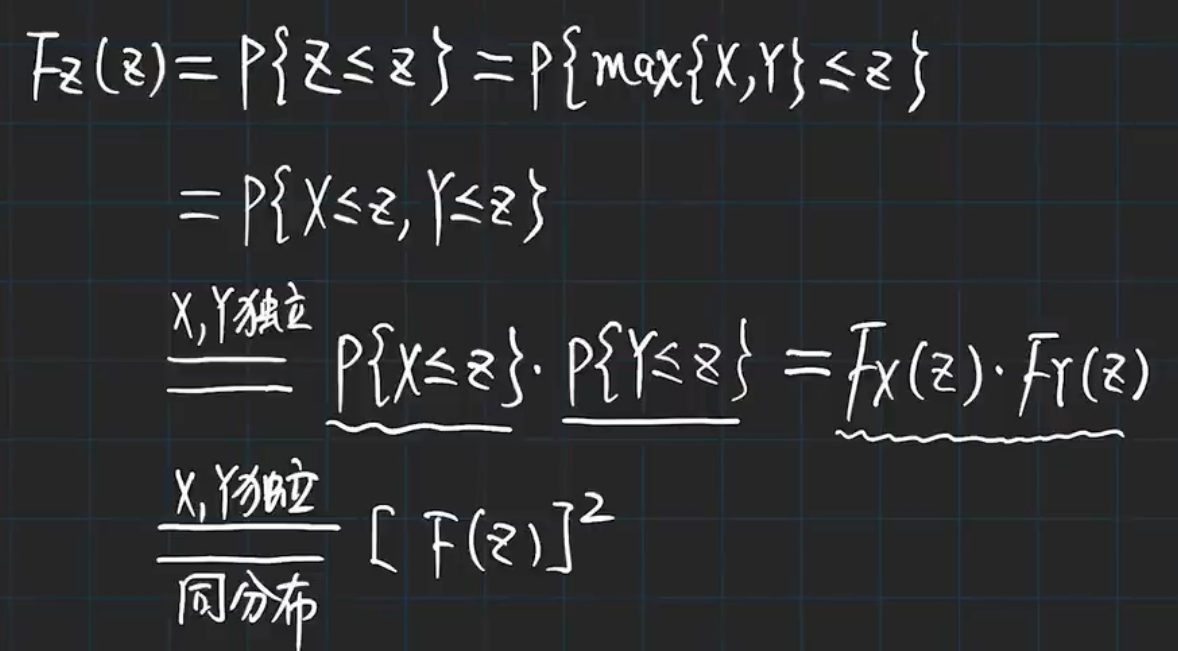 Fz(z) = P{Z≤z} = P{max{X,Y}≤z}
= P{X≤z, Y≤z}
X,Y独立
== P{X≤z}·P{Y≤z} = Fx(z)·FY(z)
X,Y独立
== [F(z)]²
同分布